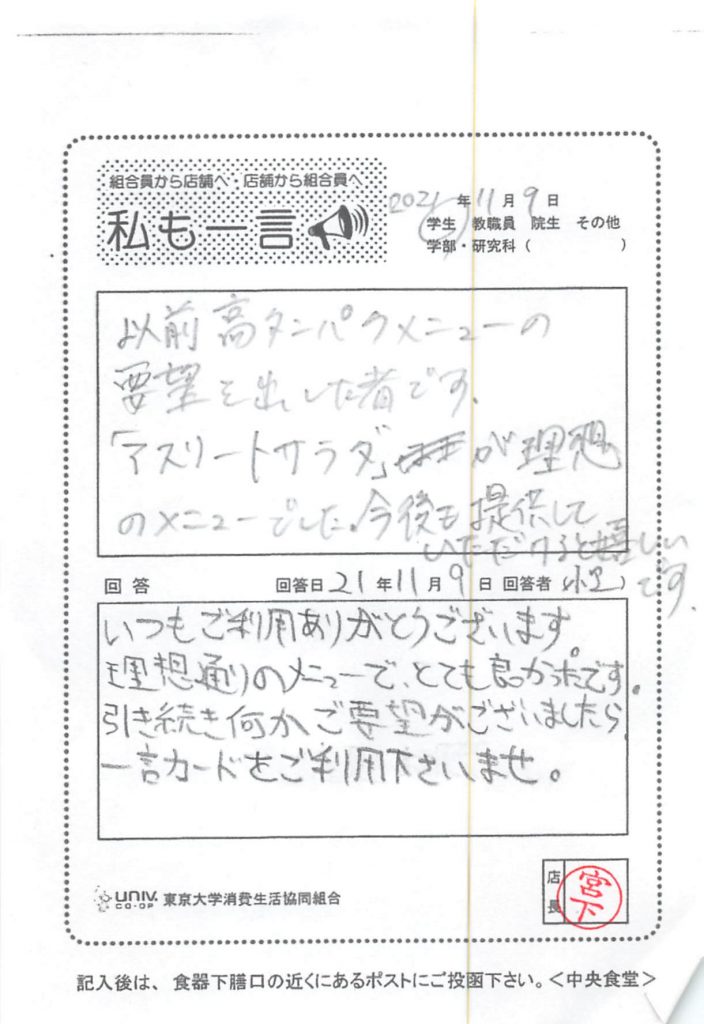 組合員から店舗へ・店舗から組合員へ
私も一言
2021年11月9日
学生 教職員 院生 その他
学部・研究科( )
以前高タンパクメニューの
要望を出した者です。
「アスリートサラダ」が理想
のメニューでした。今後も提供して
いただけると嬉しい
です。
回答 回答日21年11月9日 回答者
いつもご利用ありがとうございます。
理想通りのメニューで、とても良かったです。
引き続き何かご要望がございましたら
一言カードをご利用下さいませ。
UNIV. CO-OP 東京大学消費生活協同組合
店長 宮下
記入後は、食器下膳口の近くにあるポストにご投函下さい。<中央食堂>